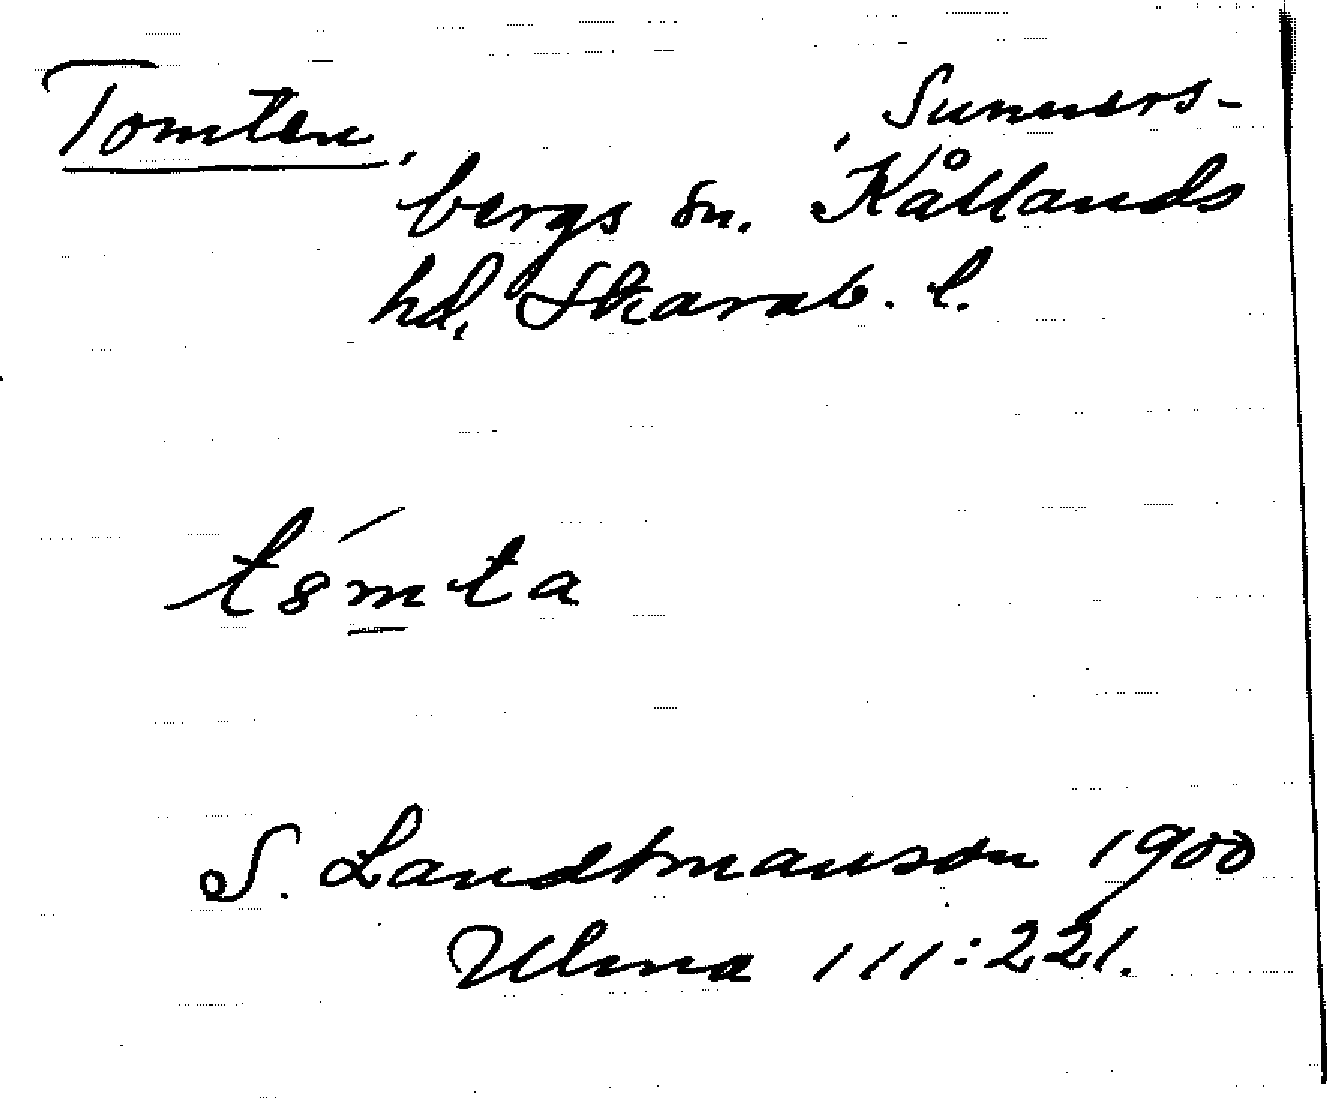 Tomten, Sunners-
bergs sn. Kållands
hd, Skarab. l.
S. Landtmanson 1900
Ulma 111:221.